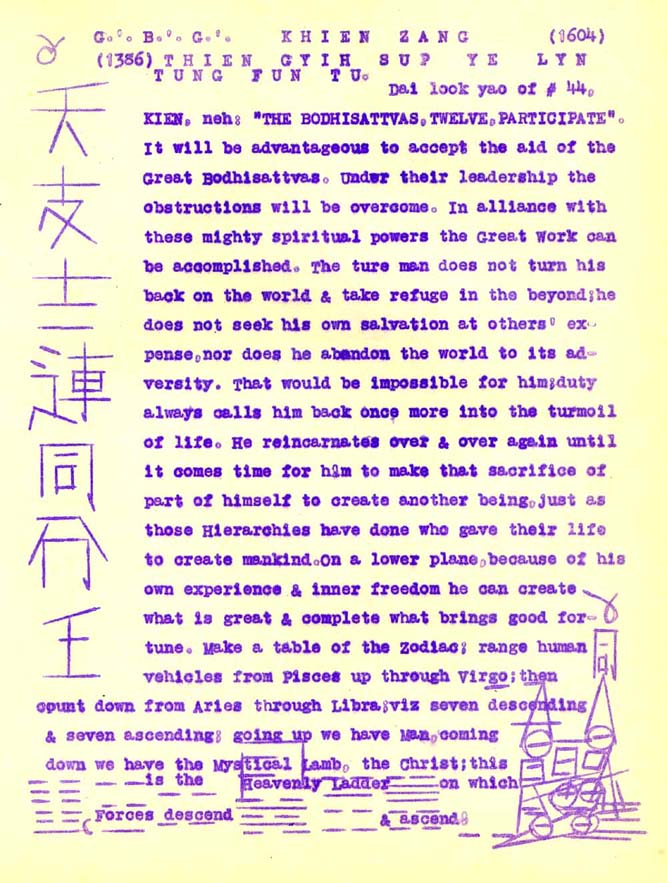 G∴ B∴ G∴ KHIEN ZANG (1604)
(1386) THIEN GYIH SUP YE LYN
TUNG FUN TU.
Dai look yao of # 44,
KIEN, neh: "THE BODHISATTVAS, TWELVE, PARTICIPATE".
It will be advantageous to accept the aid of the
Great Bodhisattvas. Under their leadership the
obstructions will be overcome. In alliance with
these mighty spiritual powers the Great Work can
be accomplished. The ture man does not turn his
back on the world & take refuge in the beyond;he
does not seek his own salvation at others' ex-
pense,nor does he abandon the world to its ad-
versity. That would be impossible for him;duty
always calls him back once more into the turmoil
of life. He reincarnates over & over again until
it comes time for him to make that sacrifice of
part of himself to create another being,just as
those Hierarchies have done who gave their life
to create mankind.On a lower plane,because of his
own experience & inner freedom he can create
what is great & complete what brings good for-
tune. Make a table of the Zodiac; range human
vehicles from Pisces up through Virgo;then
count down from Aries through Libra;viz seven descending
& seven ascending; going up we have Man,coming
down we have the Mystical Lamb, the Christ;this
is the Heavenly Ladder on which
Forces descend & ascend:
天
支
士
一
連
同
王
同